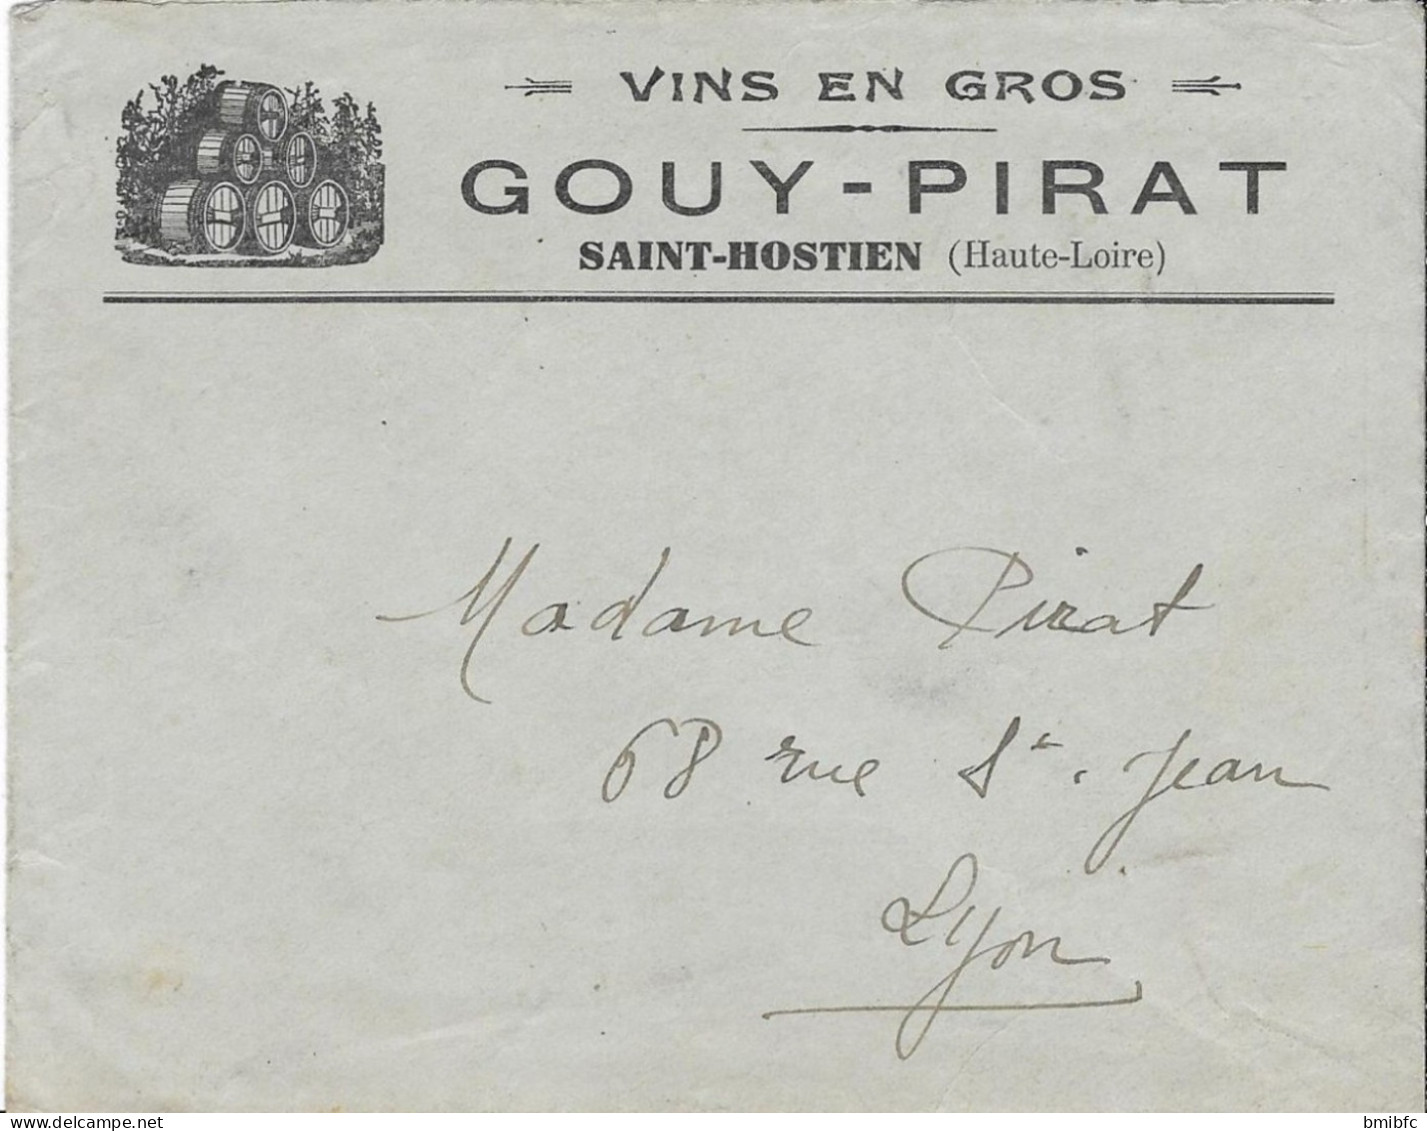 VINS EN GROS
GOUY-PIRAT
SAINT-HOSTIEN (Haute-Loire)
Madame Pirat
68 rue St. Jean
Lyon
delcampe.net
bmibfc